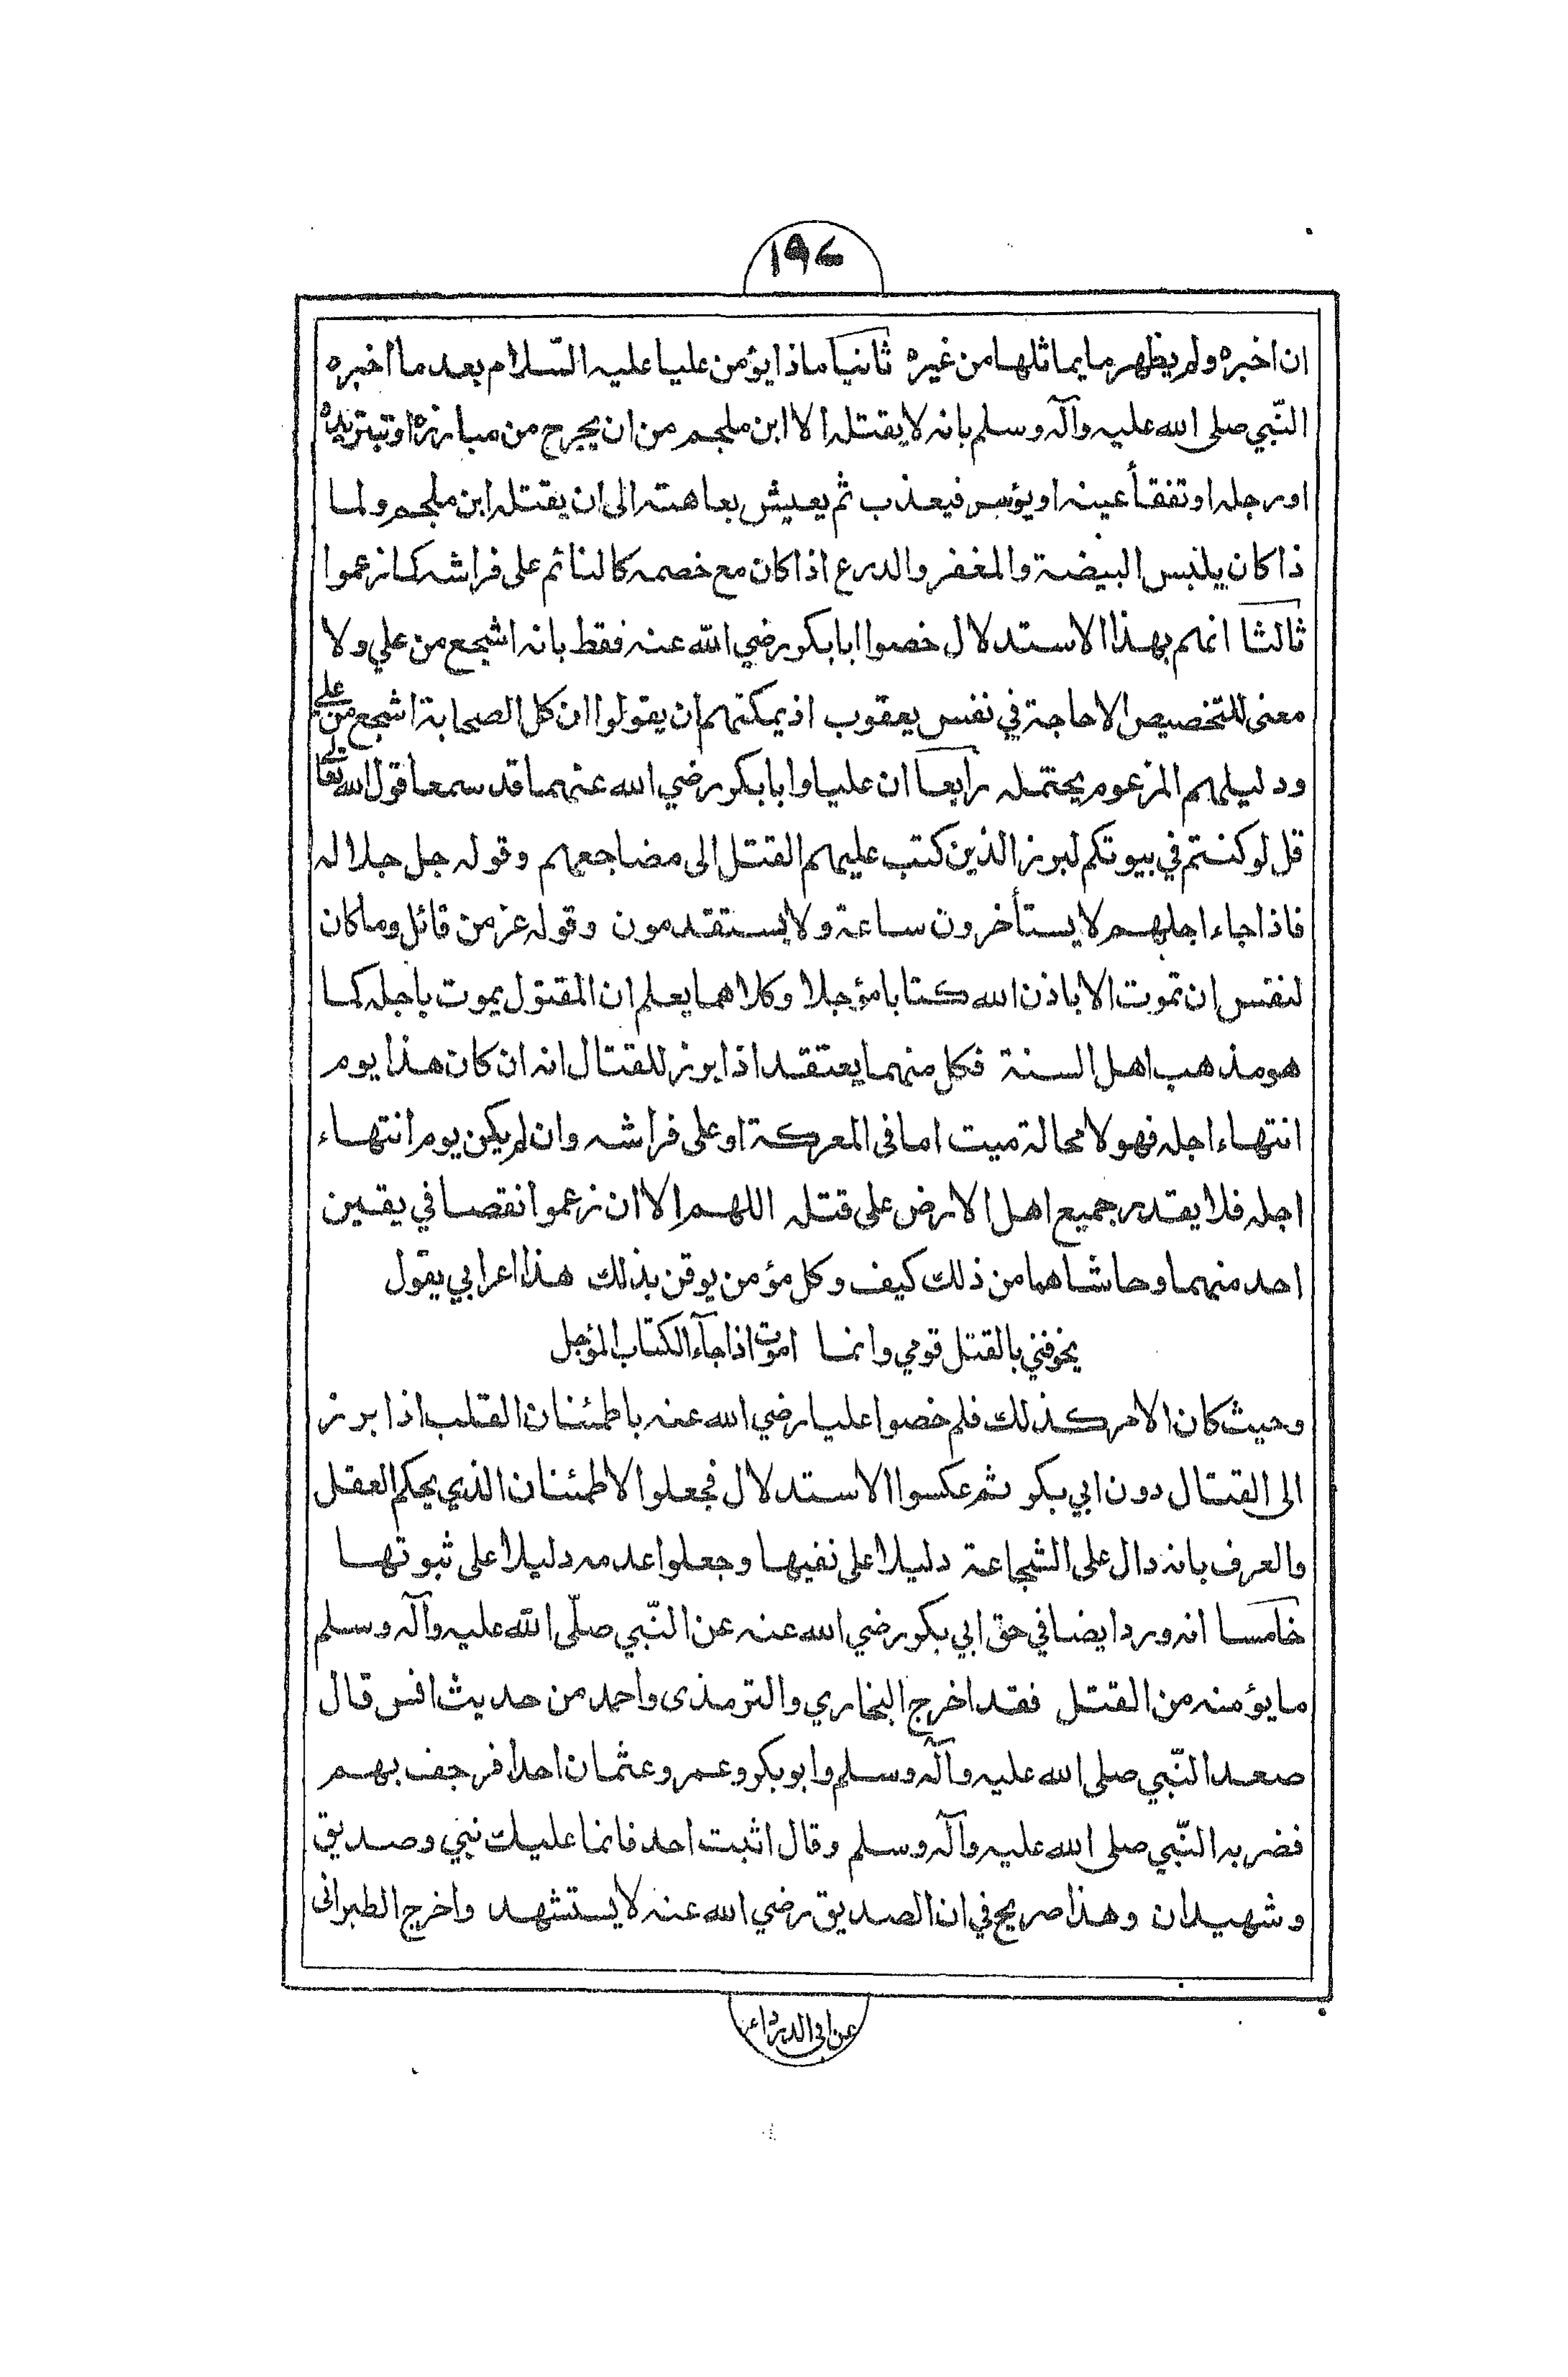 ١٩٤
ان اخبره ولم يظهر ما يماثلها من غيره ثانيا ماذا يؤمن عليا عليه السّلام بعد ما اخبره
النّبي صلى الله عليه وآله وسلم بانه لا يقتله الا ابن ملجم من ان يجرح من مبارزه او تبتر يده
او رجله او تفقأ عينه او يؤسر فيعذب ثم يعيش بعاهته الى ان يقتله ابن ملجم ولما
ذا كان يلبس البيضة والمغفر والدرع اذا كان مع خصمه كالنائم على فراشه كما زعموا
ثالثا انهم بهذا الاستدلال خصوا ابا بكر رضي الله عنه فقط بانه اشجع من علي ولا
معنى للتخصيص الا حاجة في نفس يعقوب اذ يمكنهم ان يقولوا ان كل الصحابة اشجع من علي
ودليلهم المزعوم يحتمله رابعا ان عليا وابا بكر رضي الله عنهما قد سمعا قول الله تعالى
قل لو كنتم في بيوتكم لبرز الذين كتب عليهم القتل الى مضاجعهم وقوله جل جلاله
فاذا جاء اجلهم لا يستأخرون ساعة ولا يستقدمون وقوله عز من قائل وما كان
لنفس ان تموت الا باذن الله كتابا مؤجلا وكلاهما يعلم ان المقتول يموت باجله كما
هو مذهب اهل السنة فكل منهما يعتقد اذا برز للقتال انه ان كان هذا يوم
انتهاء اجله فهو لا محالة ميت اما فى المعركة او على فراشه وان لم يكن يوم انتهاء
اجله فلا يقدر جميع اهل الارض على قتله اللهم الا ان زعموا نقصا في يقين
احد منهما وحاشاهما من ذلك كيف وكل مؤمن يوقن بذلك هذا اعرابي يقول
يخوفني بالقتل قومي وانما اموت اذا جآء الكتاب المؤجل
وحيث كان الامر كذلك فلم خصوا عليا رضي الله عنه باطمئنان القلب اذا برز
الى القتال دون ابي بكر ثم عكسوا الاستدلال فجعلوا الاطمئنان الذي يحكم العقل
والعرف بانه دال على الشجاعة دليلا على نفيها وجعلوا عدمه دليلا على ثبوتها
خامسا انه ورد ايضا في حق ابي بكر رضي الله عنه عن النّبي صلّى الله عليه وآله وسلم
ما يؤمنه من القتل فقد اخرج البخاري والترمذى واحمد من حديث انس قال
صعد النّبي صلى الله عليه وآله وسلم وابو بكر وعمر وعثمان احدا فرجف بهم
فضربه النّبي صلى الله عليه وآله وسلم وقال اثبت احد فانما عليك نبي وصديق
وشهيدان وهذا صريح في ان الصديق رضي الله عنه لا يستشهد واخرج الطبرانى
عن ابى الدرداء